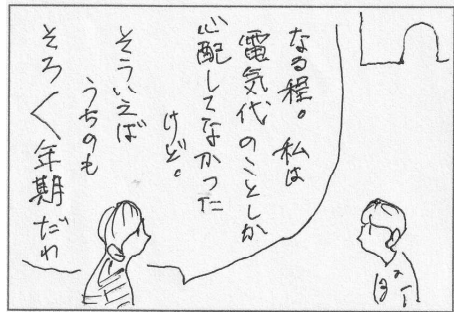 なる程。私は
電気代のことしか
心配してなかった
けど。
そういえば
うちのも
そろ〱年期だわ